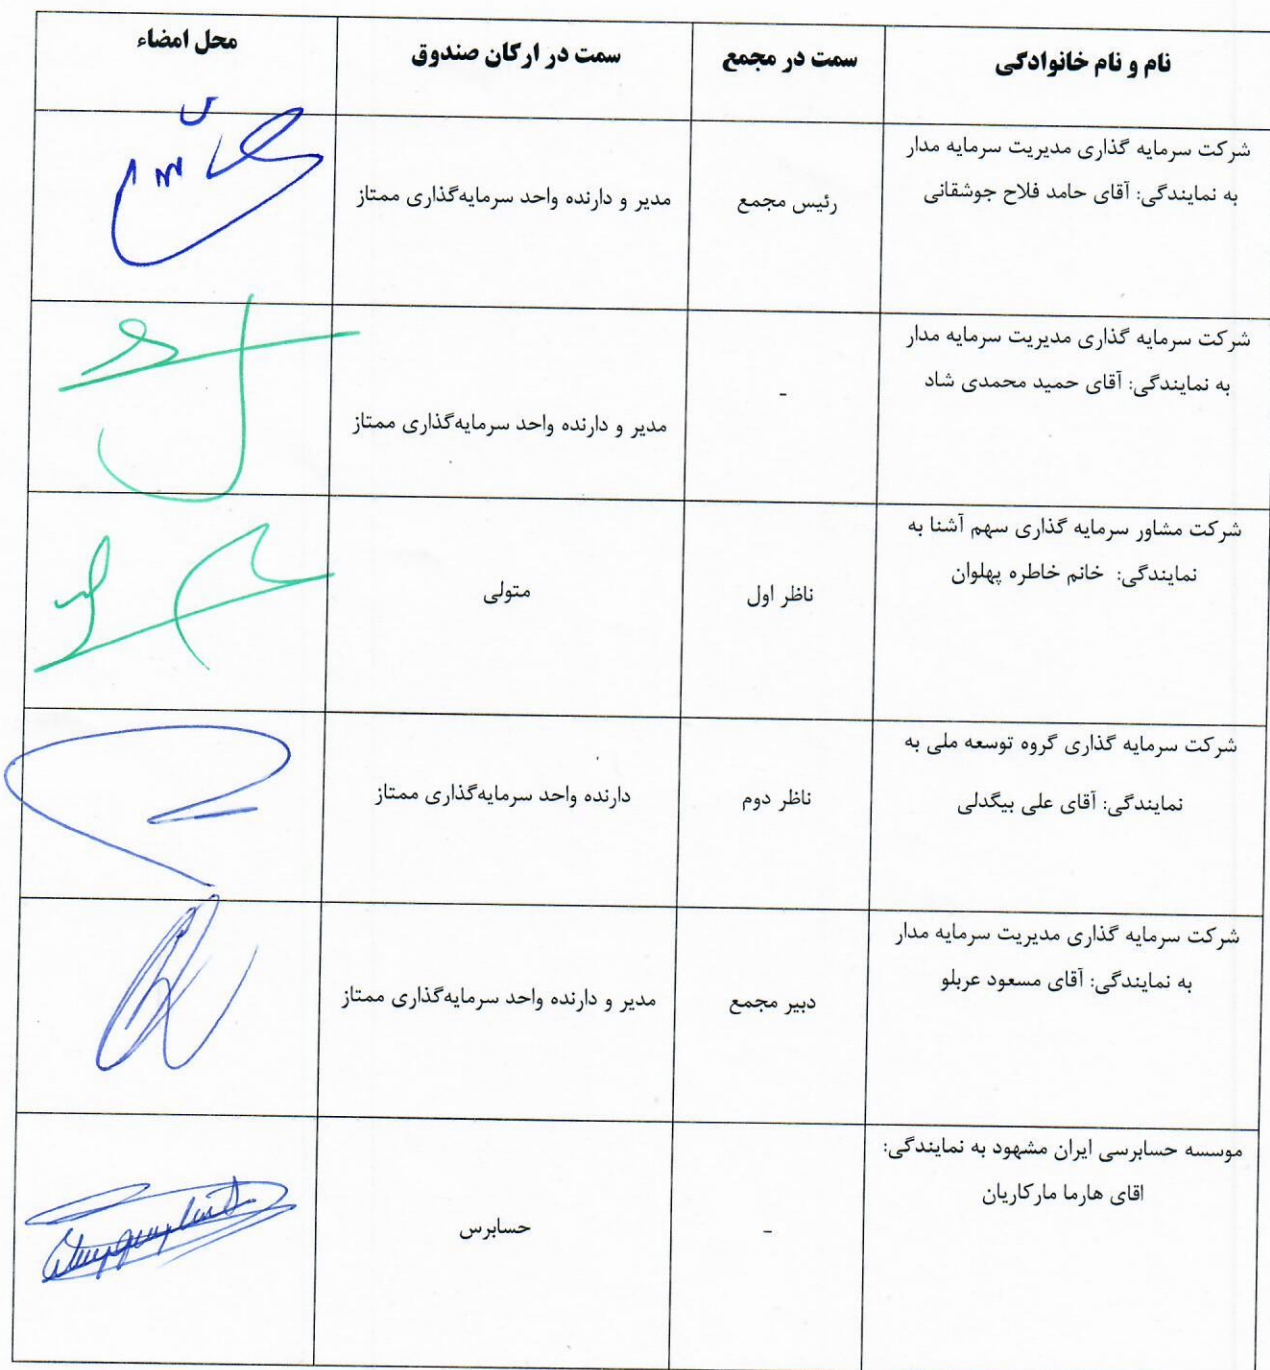 نام و نام خانوادگی
سمت در مجمع
سمت در ارکان صندوق
محل امضاء
شرکت سرمایه گذاری مدیریت سرمایه مدار
به نمایندگی: آقای حامد فلاح جوشقانی
رئیس مجمع
مدیر و دارنده واحد سرمایه‌گذاری ممتاز
شرکت سرمایه گذاری مدیریت سرمایه مدار
به نمایندگی: آقای حمید محمدی شاد
-
مدیر و دارنده واحد سرمایه‌گذاری ممتاز
شرکت مشاور سرمایه گذاری سهم آشنا به
نمایندگی: خانم خاطره پهلوان
ناظر اول
متولی
شرکت سرمایه گذاری گروه توسعه ملی به
نمایندگی: آقای علی بیگدلی
ناظر دوم
دارنده واحد سرمایه‌گذاری ممتاز
شرکت سرمایه گذاری مدیریت سرمایه مدار
به نمایندگی: آقای مسعود عربلو
دبیر مجمع
مدیر و دارنده واحد سرمایه‌گذاری ممتاز
موسسه حسابرسی ایران مشهود به نمایندگی:
اقای هارما مارکاریان
-
حسابرس